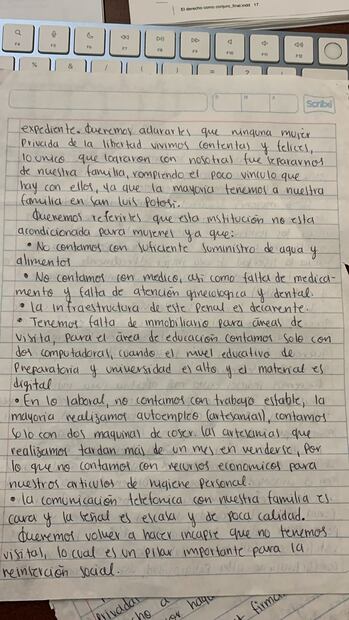 El derecho como conjuro_final.indd 17
F4 F5 F6 F7 F8 F9 F10 F11 F12
% & / ( )
D M A Scribe
expediente. Queremos aclararles que ninguna mujer
Privada de la libertad vivimos contentas y felices,
lo unico que lograron con nosotras fue separarnos
de nuestra familia, rompiendo el poco vinculo que
hay con ellos, ya que la mayoria tenemos a nuestra
familia en San Luis Potosi.
Queremos referirles que esta institución no esta
acondicionada para mujeres ya que:
• No contamos con suficiente suministro de agua y
alimentos
• No contamos con medico, asi como falta de medica-
mento y falta de atención ginecologica y dental.
• la infraestructura de este Penal es decarente.
• Tenemos falta de inmobiliario para áreas de
visita, para el área de educación contamos solo con
dos computadoras, cuando el nivel educativo de
Preparatoria y universidad es alto y el material es
digital
• En lo laboral, no contamos con trabajo estable, la
mayoria realizamos autoempleo (artesanias), contamos
solo con dos maquinas de coser. las artesanias que
realizamos tardan más de un mes en venderse, por
lo que no contamos con recursos economicos para
nuestros articulos de higiene personal.
• la comunicación telefonica con nuestra familia es
cara y la señal es escasa y de poca calidad.
Queremos volver a hacer incapie que no tenemos
visitas, lo cual es un pilar importante para la
reinserción social.